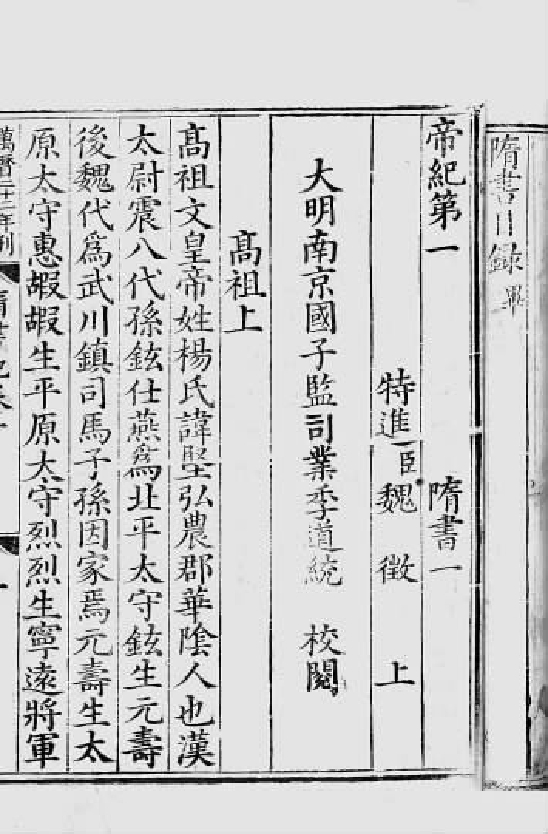 隋書目録畢
帝紀第一 隋書一
特進臣魏徵上
大明南京國子監司業季道統 校閱
高祖上
高祖文皇帝姓楊氏諱堅弘農郡華陰人也漢
太尉震八代孫鉉仕燕爲北平太守鉉生元壽
後魏代爲武川鎮司馬子孫因家焉元壽生太
原太守惠嘏嘏生平原太守烈烈生寧遠將軍
萬曆二十二年刊